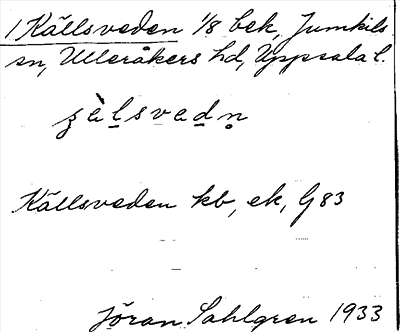 1 Källsveden 1/8 bek, Jumkils
sn, Ulleråkers hd, Uppsala l.
Källsveden kb, ek, G 83
Jöran Sahlgren 1933